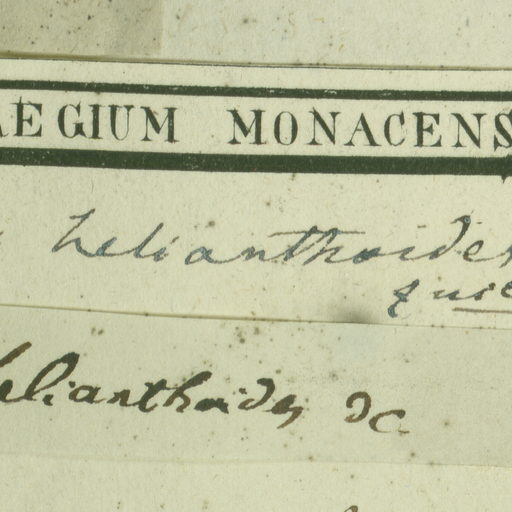 AEGIUM MONACENS
helianthoides
helianthoides DC